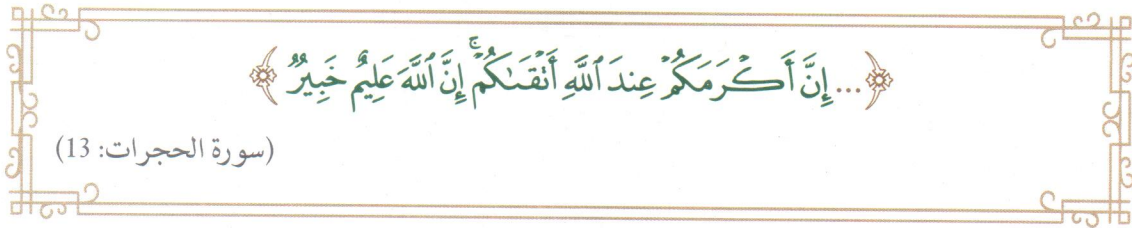 ﴿... إِنَّ أَكْرَمَكُمْ عِندَ ٱللَّهِ أَتْقَىٰكُمْ ۚ إِنَّ ٱللَّهَ عَلِيمٌ خَبِيرٌ ﴾
(سورة الحجرات: 13)